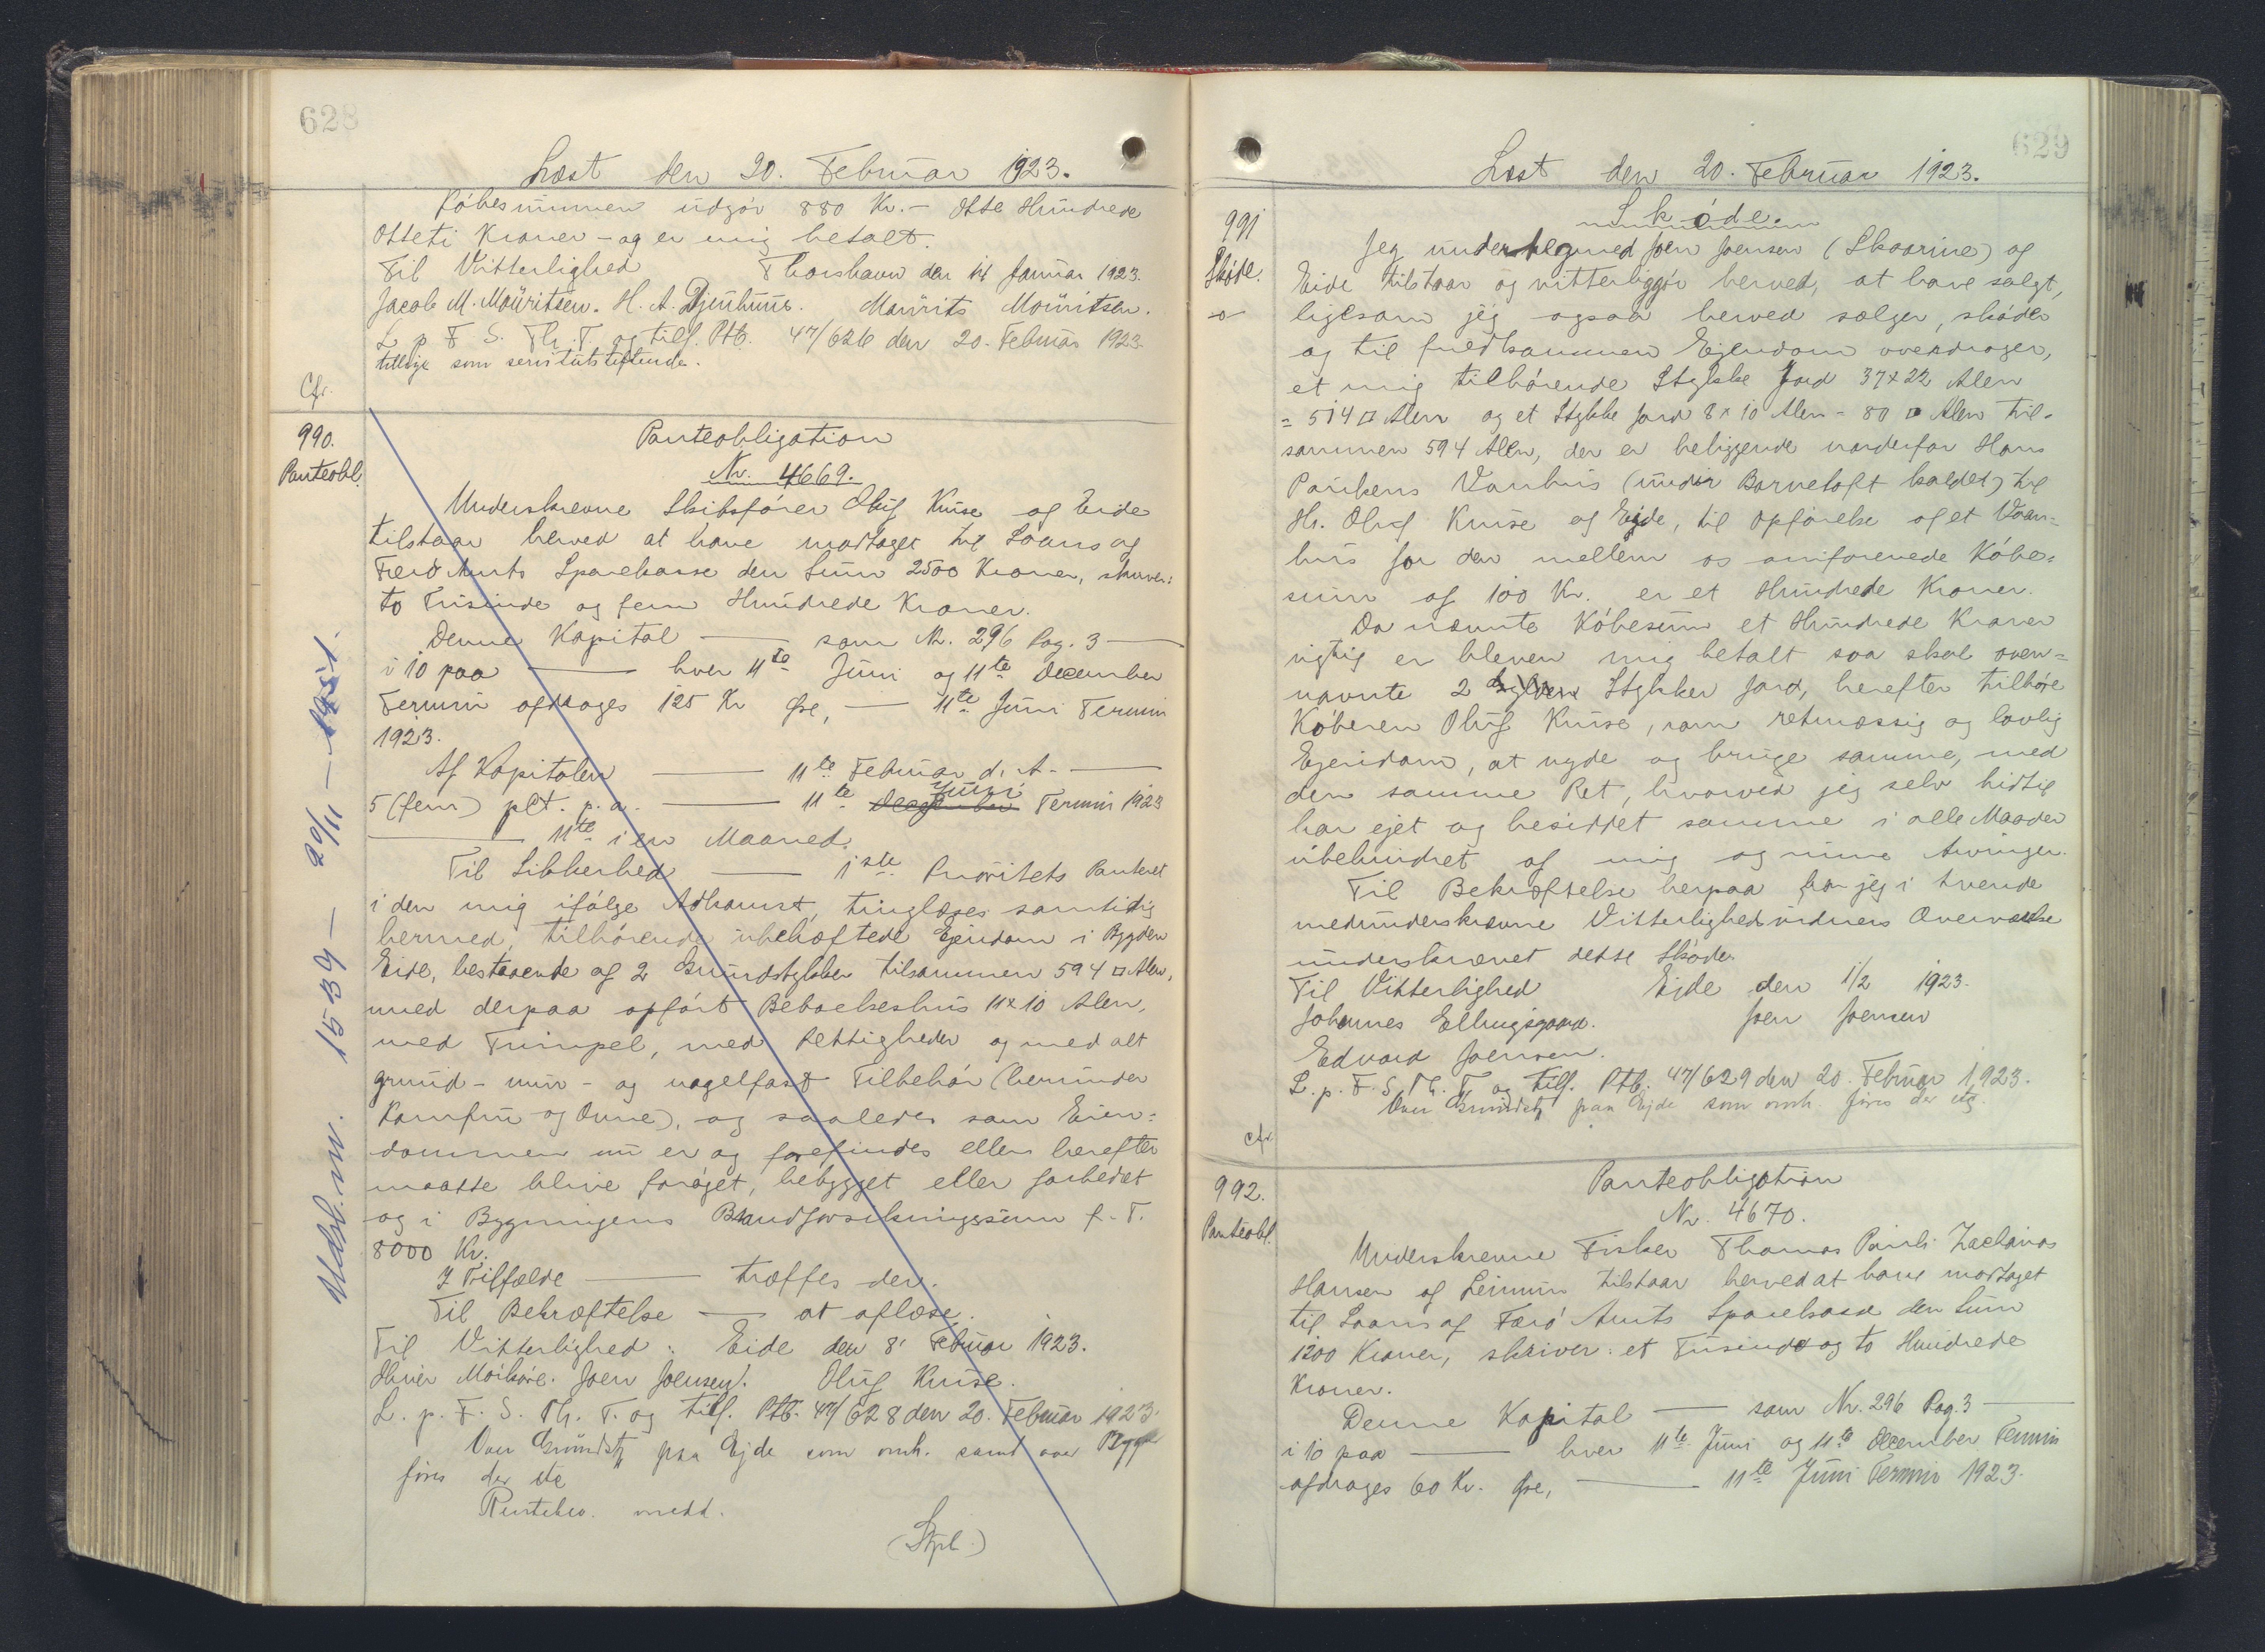 628
Læst den 20. Februar 1923.
Købesummen udgør 880 Kr. - Otte Hundrede
Otteti Kroner - og er mig betalt.
Til Vitterlighed Thorshavn den 14 Januar 1923.
Jacob M. Mouritsen. H. A. Djurhuus. Mourits Mouritsen.
L. p. F. S. Th. T. og tilf. Ptb. 47/626 den 20. Februar 1923
tillige som servitutstiftende.
Cfr.
990.
Panteobl.
Panteobligation
Nr. 4669.
Underskrevne Skibsfører Oluf Kruse af Eide
tilstaar herved at have modtaget til Laans af
Færø Amts Sparekasse den Sum 2500 Kroner, skriver:
to Tusinde og fem Hundrede Kroner.
Denne Kapital — som Nr. 296 Pag. 3 —
i 10 paa — hver 11te Juni og 11te December
Termin afdrages 125 Kr Øre, — 11te Juni Termin
1923.
Af Kapitalen — 11te Februar d. A. —
5 (fem) pCt. p. a. — 11te December Juni Termin 1923
— 11te i en Maaned.
Til Sikkerhed — 1ste Prioritets Panteret
i den mig ifølge Adkomst, tinglæses samtidig
hermed, tilhørende ubehæftede Ejendom i Bygden
Eide, bestaaende af 2 Grundstykker tilsammen 594 □ Alen,
med derpaa opført Beboelseshus 11 x 10 Alen,
med Tilbehør
med Rettigheder og med alt
grund- mur- og nagelfast Tilbehør (herunder
Komfur og Ovne), og saaledes som Eien=
dommen nu er og forefindes eller herefter
maatte blive forøget, bebygget eller forbedret
og i Bygningens Brandforsikringssum f. T.
8000 Kr.
I Tilfælde — træffes der.
Til Bekræftelse — at aflæse.
Til Vitterlighed: Eide den 8' Februar 1923.
Joen Joensen. Oluf Kruse.
L. p. F. S. Th. T. og tilf. Ptb. 47/628 den 20. Februar 1923.
Over Grundst. paa Ejde som omh. samt over Bygn
føres der etc
Rentebev. medd.
(Stpl.)
Udsl. nr. 1539 — 29/11 — 1951.
629
Læst den 20. Februar 1923.
991
Skøde.
Skøde.
Jeg undertegned Joen Joensen (Skaarine) af
Eide tilstaar og vitterliggør herved, at have solgt,
ligesom jeg ogsaa herved sælger, skøder
og til fuldkommen Ejendom overdrager,
et mig tilhørende Stykke Jord 37 x 22 Alen
= 514 □ Alen og et Stykke Jord 8 x 10 Alen = 80 □ Alen til-
sammen 594 Alen, der er beliggende nordenfor Hans
Poulsens Vaanhus (undir Barneloft kaldet) til
Hr. Oluf Kruse af Ejde, til Opførelse af et Vaan=
hus for den mellem os omforenede Købe=
sum af 100 Kr. er et Hundrede Kroner.
Da nævnte Købesum et Hundrede Kroner
rigtig er bleven mig betalt saa skal oven=
nævnte 2 Stykker Jord, herefter tilhøre
Køberen Oluf Kruse, som retmæssig og lovlig
Ejendom, at nyde og bruge samme, med
den samme Ret, hvorved jeg selv hidtil
har ejet og besiddet samme i alle Maader
ubehindret af mig og mine Arvinger.
Til Bekræftelse herpaa har jeg i tvende
medunderskrevne Vitterlighedsvidners Overværelse
underskrevet dette Skøde.
Til Vitterlighed Ejde den 1/2 1923.
Johannes Ellingsgaard. Joen Joensen
Edvard Joensen.
L. p. F. S. Th. T. og tilf. Ptb. 47/629 den 20. Februar 1923.
Over Grundst. paa Ejde som omh. føres der etc.
Cfr.
992.
Panteobl.
Panteobligation
Nr. 4670.
Underskrevne Fisker Thomas Pauli Zacharias
Hansen af Leirum tilstaar herved at have modtaget
til Laans af Færø Amts Sparekasse den Sum
1200 Kroner, skriver: et Tusinde og to Hundrede
Kroner.
Denne Kapital — som Nr. 296 Pag. 3 —
i 10 paa — hver 11te Juni og 11te December Termin
afdrages 60 Kr. Øre, — 11te Juni Termin 1923.